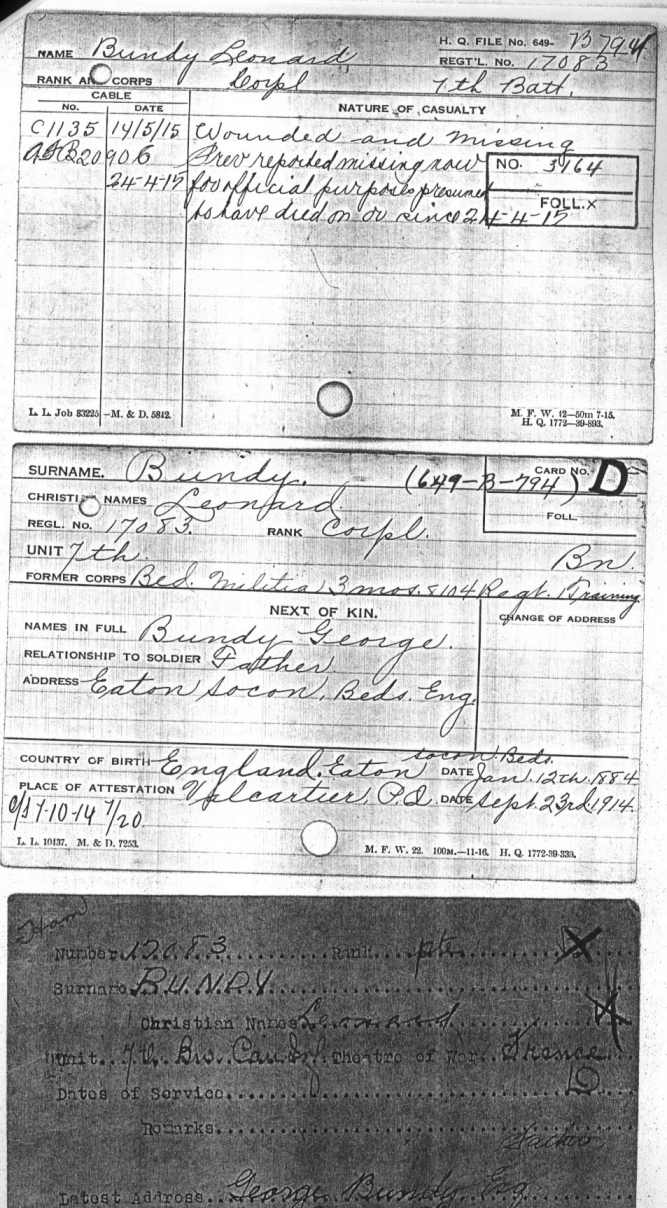 NAME Bundy Leonard H. Q. FILE No. 649- B 794
RANK AND CORPS Corpl REGT'L. No. 17083
7th Batt.
CABLE
No. DATE NATURE OF CASUALTY
C1135 14/5/15 Wounded and missing
20906 Prev reported missing now NO. 3964
24-4-15 for official purposes presumed FOLL. X
to have died on or since 24-4-15
L. L. Job 83225 -M. & D. 5842. M. F. W. 42-50m 7-15.
H. Q. 1772-39-893.
SURNAME. Bundy. (649-B-794) CARD No. D
CHRISTIAN NAMES Leonard. FOLL.
REGL. No. 17083. RANK Corpl.
UNIT 7th. Bn.
FORMER CORPS Bed. Militia, 3 mos. & 104 Regt. Training
NEXT OF KIN. CHANGE OF ADDRESS
NAMES IN FULL Bundy George.
RELATIONSHIP TO SOLDIER Father
ADDRESS Eaton Socon, Beds. Eng.
COUNTRY OF BIRTH England. Eaton Socon Beds. DATE Jan. 12th. 1884
PLACE OF ATTESTATION Valcartier, P.Q. DATE Sept. 23rd. 1914.
7-10-14 7/20
L. L. 10137. M. & D. 7253. M. F. W. 22. 100M.-11-16. H. Q. 1772-39-339.
Number 17083 Rank pte
Surname BUNDY
Christian Names Leonard
Unit Theatre of War France
Dates of Service
Remarks
Father
Latest Address George Bundy Esq